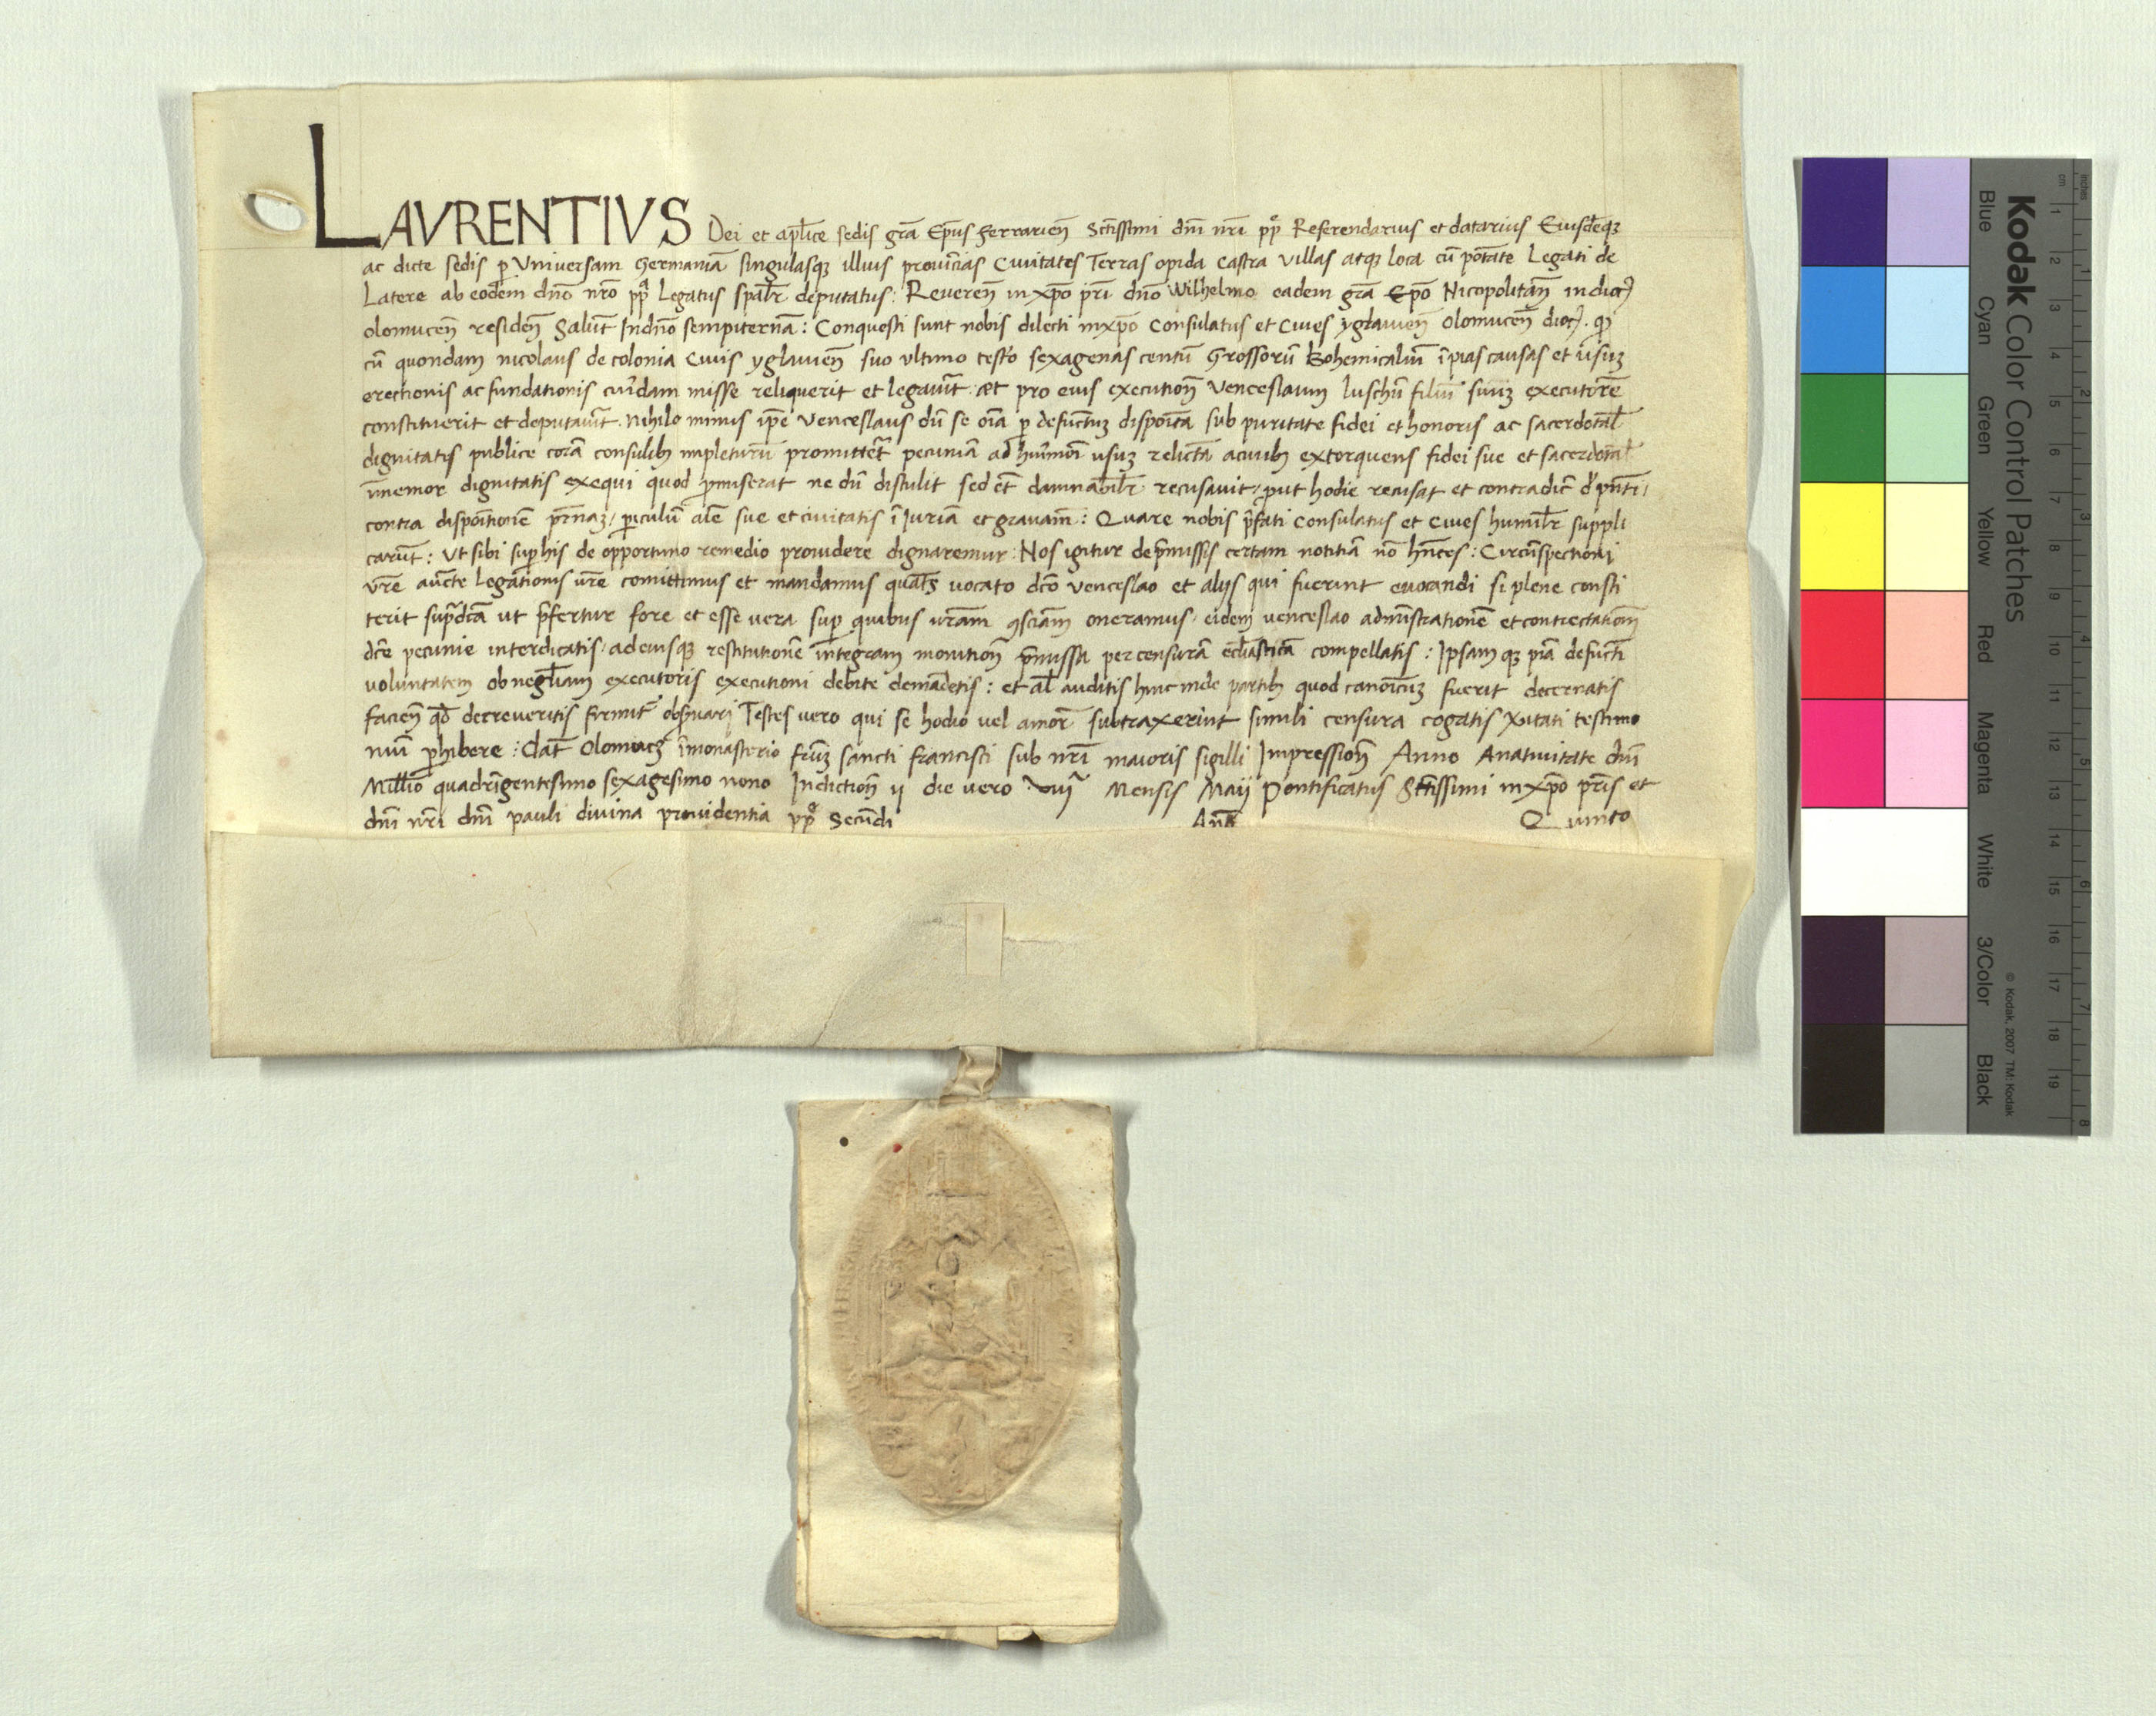 LAVRENTIVS Dei et aplice sedis gra Epus ferrarien Sctissimi dni nri pp Referendarius et datarius Eiusdeqz
ac dicte sedis p Universam Germaniã singulasqz illius provincias Civitates Terras opida castra villas atqz loca cũ potate Legati de
Latere ab eodem dno nro pp Legatus spalr deputatus: Reveren in xpo pri dno Wilhelmo eadem gra Epo Nicopolitan in dioc
olomucen residen Salut In dno sempiternã: Conquesti sunt nobis dilecti in xpo Consulatus et Cives yglavien olomucen dioc. qd
cũ quondam nicolaus de colonia Civis yglavien suo ultimo testo sexagenas centũ Grossorũ Bohemicaliũ ĩ pias causas et usuz
erectionis ac fundationis cuidam misse reliquerit et legavit et pro eius execution venceslaum luschũ filiũ suuz executorẽ
constituerit et deputavit. nihilo minus ipe venceslaus dũ se oĩa p defunctuz dispoita sub puritate fidei et honoris ac sacerdotal
dignitatis publice corã consulib impleturũ promittet pecuniã ad huiusmoi usuz relictã a civib extorquens fidei sue et sacerdotal
ĩmemor dignitatis exequi quod pmiserat ne dũ distulit sed et damnabilr recusavit / put hodie recusat et contradic d pnti /
contra dispoitionẽ pr̃naz / piculũ aĩe sue et civitatis ĩ Iuriã et gravam: Quare nobis pfati Consulatus et Cives humilr suppli
carũt: Ut sibi sup his de opportuno remedio providere dignaremur: Nos igitur de pmissis certam notitiã nõ hñtes: Circũspectioni
vrẽ aucte legationis nrẽ comittimus et mandamus quatz vocato dco venceslao et alijs qui fuerint evocandi si plene consti
terit supdca ut pfertur fore et esse vera sup quibus vram ɔsciam oneramus. eidem venceslao administrationẽ et contrectation
dce pecunie interdicatis / ad eiusqz restitutionẽ integram monition pmissa per censurã ecclasticã compellatis: Ipsam qz piã defuncti
voluntatem ob negliam executoris executioni debite demãdetis: et al auditis hinc inde partib quod canonicuz fuerit decernatis
facien qd decreveritis firmit observari Testes vero qui se hodio vel amor subtraxerint simili censura cogatis vitati testimo
niũ phibere: Dat Olomucz ĩ monasterio fruz sancti francisci sub nri maioris sigilli Impression Anno A nativitate dni
Millio quadrigentesimo sexagesimo nono Indiction ij die vero viij Mensis Maij Pontificatus Sctissimi in xpo pris et
dni nri dni pauli divina providentia pp Secundi Ano Quinto
Kodak Color Control Patches
© Kodak, 2007 TM: Kodak
Blue Cyan Green Yellow Red Magenta White 3/Color Black
cm 1 2 3 4 5 6 7 8 9 10 11 12 13 14 15 16 17 18 19
inches 1 2 3 4 5 6 7 8